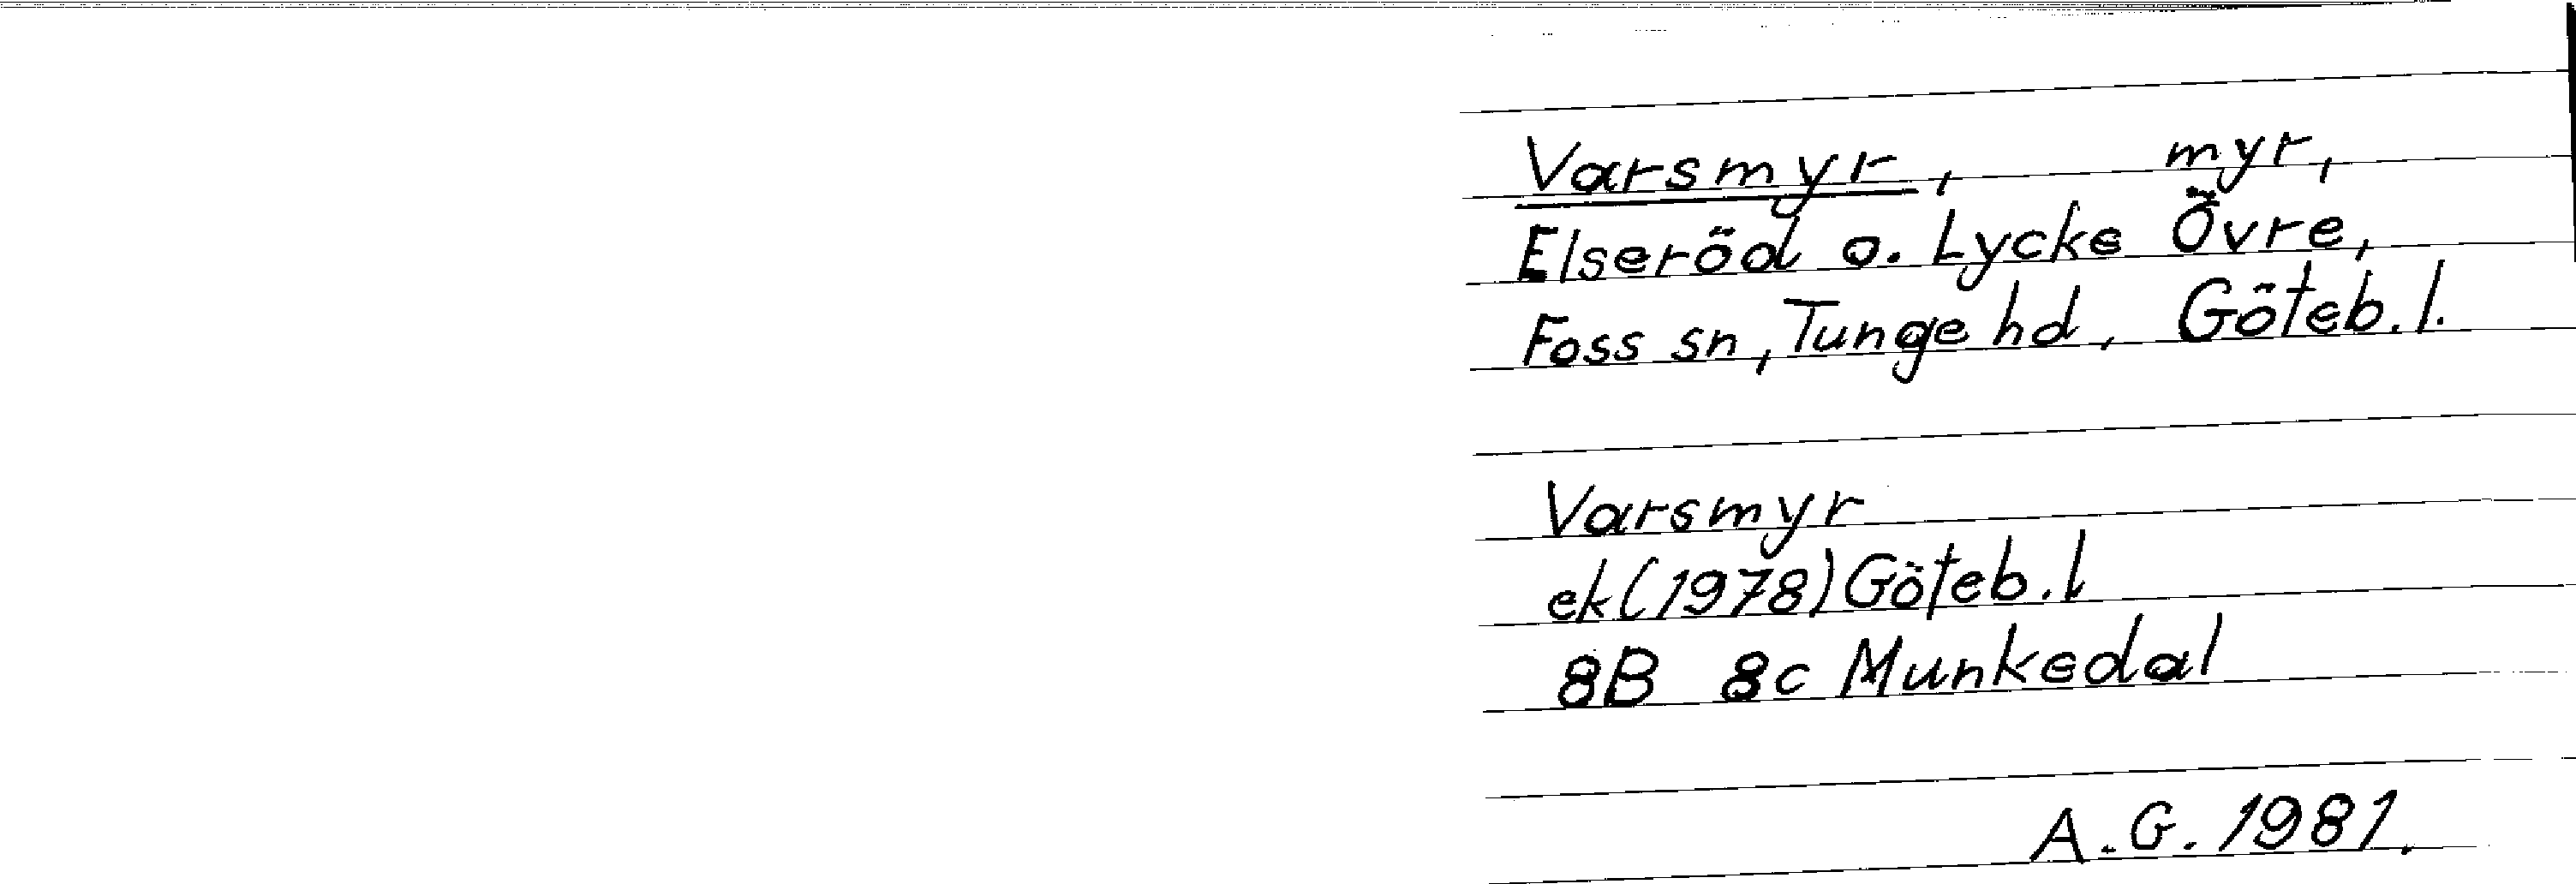 Varsmyr, myr,
Elseröd o. Lycke Övre,
Foss sn, Tunge hd, Göteb. l.
Varsmyr
ek(1978) Göteb. l
8B 8c Munkedal
A.G. 1981.